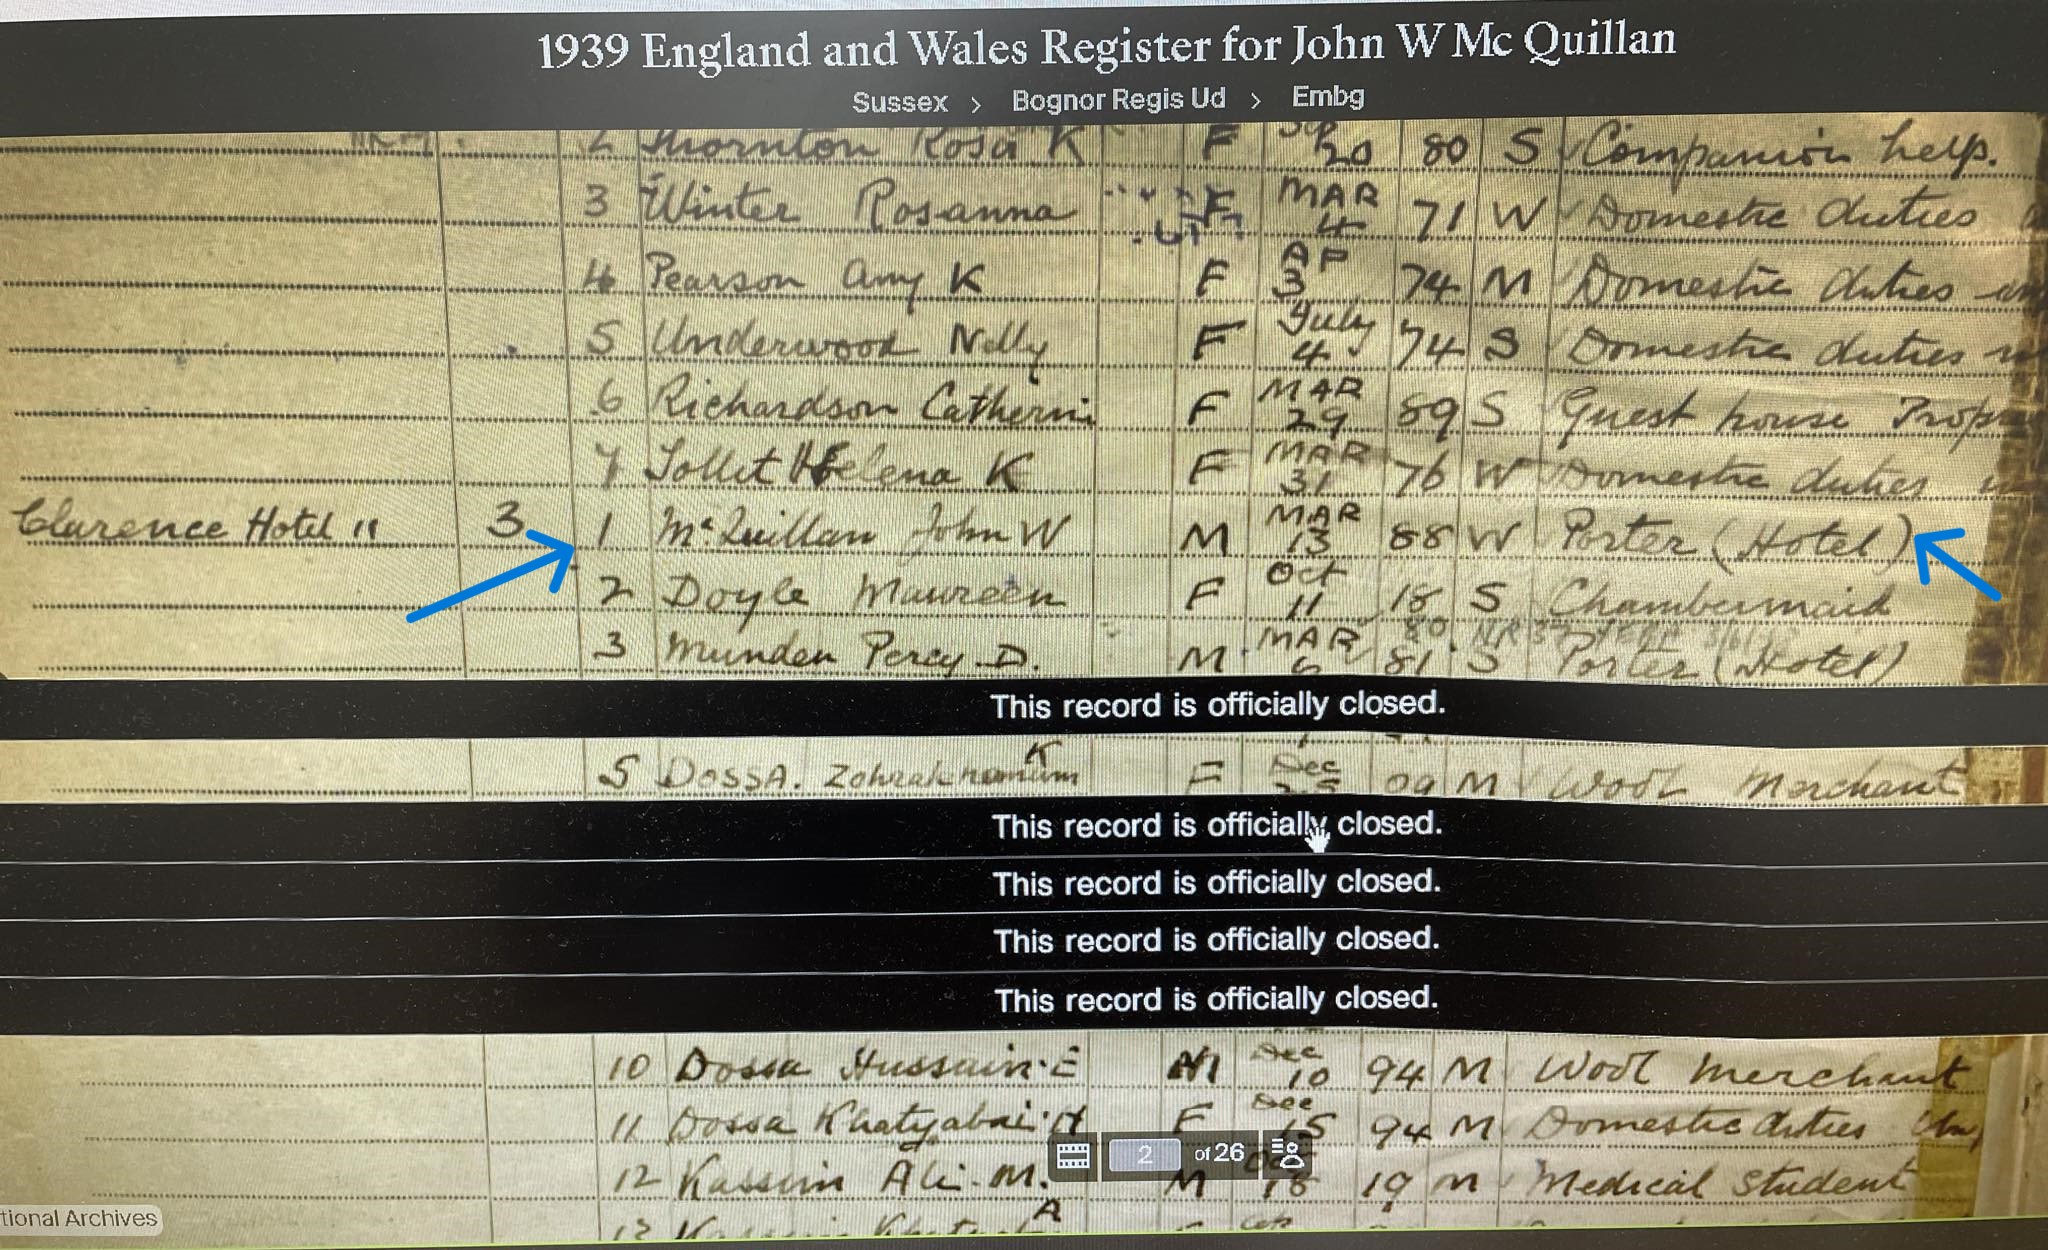 1939 England and Wales Register for John W Mc Quillan
Sussex > Bognor Regis Ud > Embg
2 Thornton Rosa K F 20 80 S Companion help.
3 Winter Rosanna F MAR 4 71 W Domestic duties
4 Pearson Amy K F AP 3 74 M Domestic duties
5 Underwood Nelly F July 4 74 S Domestic duties
6 Richardson Catherin F MAR 29 89 S Guest house Prop
7 Tollet Helena K F MAR 31 76 W Domestic duties
Clarence Hotel 11 3 1 McQuillan John W M MAR 13 88 W Porter (Hotel)
2 Doyle Maureen F Oct 11 18 S Chambermaid
3 Munden Percy D. M MAR 6 81 S Porter (Hotel)
This record is officially closed.
5 DOSSA. F Dec 09 M Wool Merchant
This record is officially closed.
This record is officially closed.
This record is officially closed.
This record is officially closed.
10 Dossa Hussain E M Dec 10 94 M Wool Merchant
11 Dossa Khatyabai H F Dec 15 94 M Domestic duties
2 of 26
12 Kassim Ali. M. M 18 19 M Medical Student
tional Archives
13 A